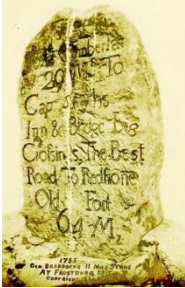 29 Ms To
Capt Smyths
Inn & Bridge Big
Crosings. The Best
Road To Redstone
Old Fort
64 M
1755
Gen. Braddock's 11 Mile Stone
At Frostburg